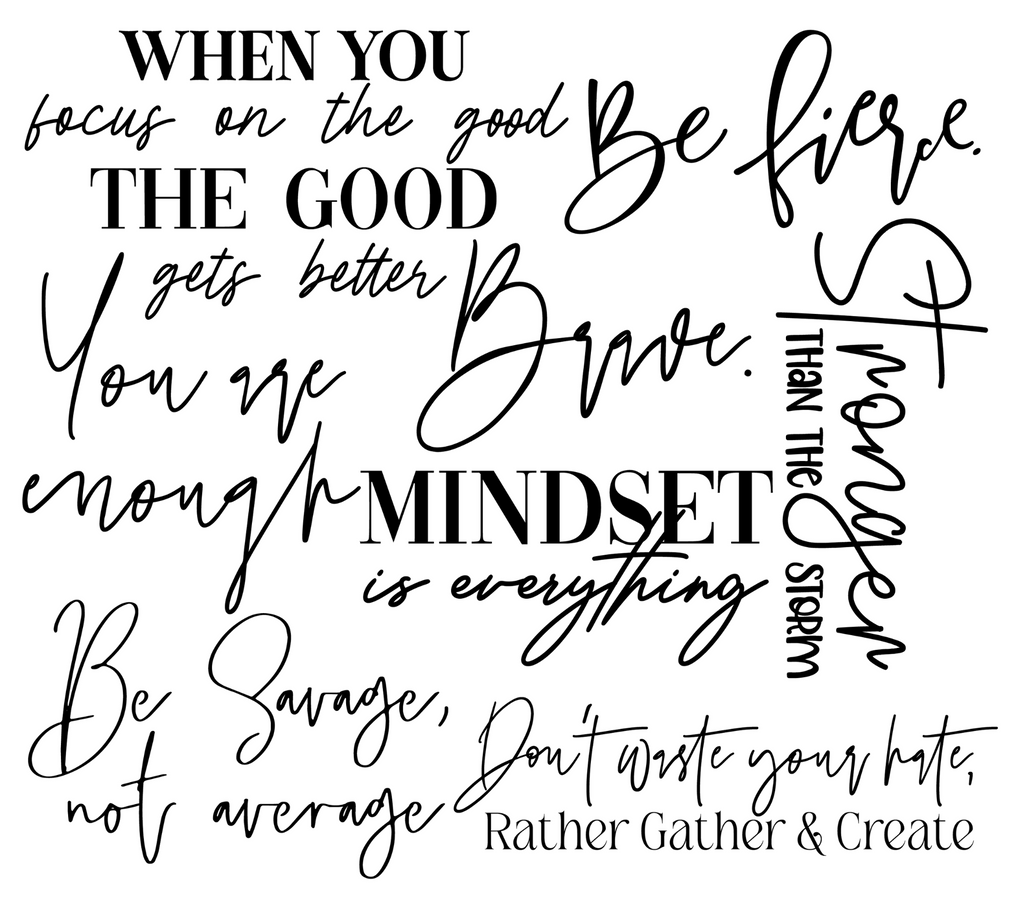 WHEN YOU
focus on the good
THE GOOD
gets better
Be fierce.
Brave.
You are
enough
Stronger
THAN THE STORM
MINDSET
is everything
Be Savage,
not average
Don't waste your hate,
Rather Gather & Create